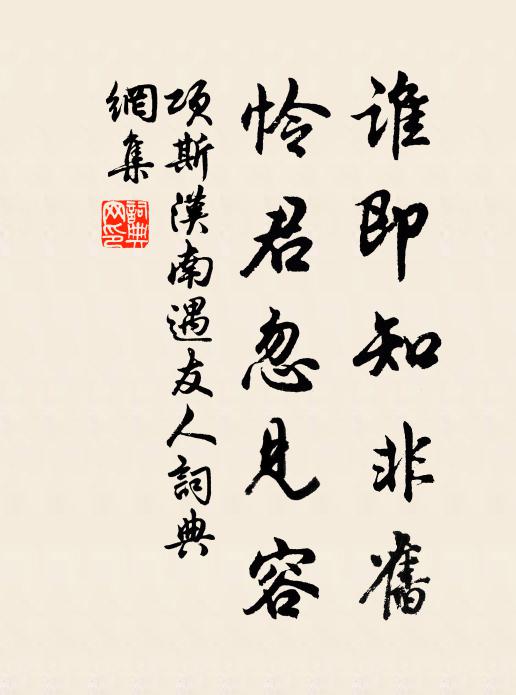 誰即知非舊
怜君忽見容
項斯漢南遇友人詞典
網集
詞典
网印